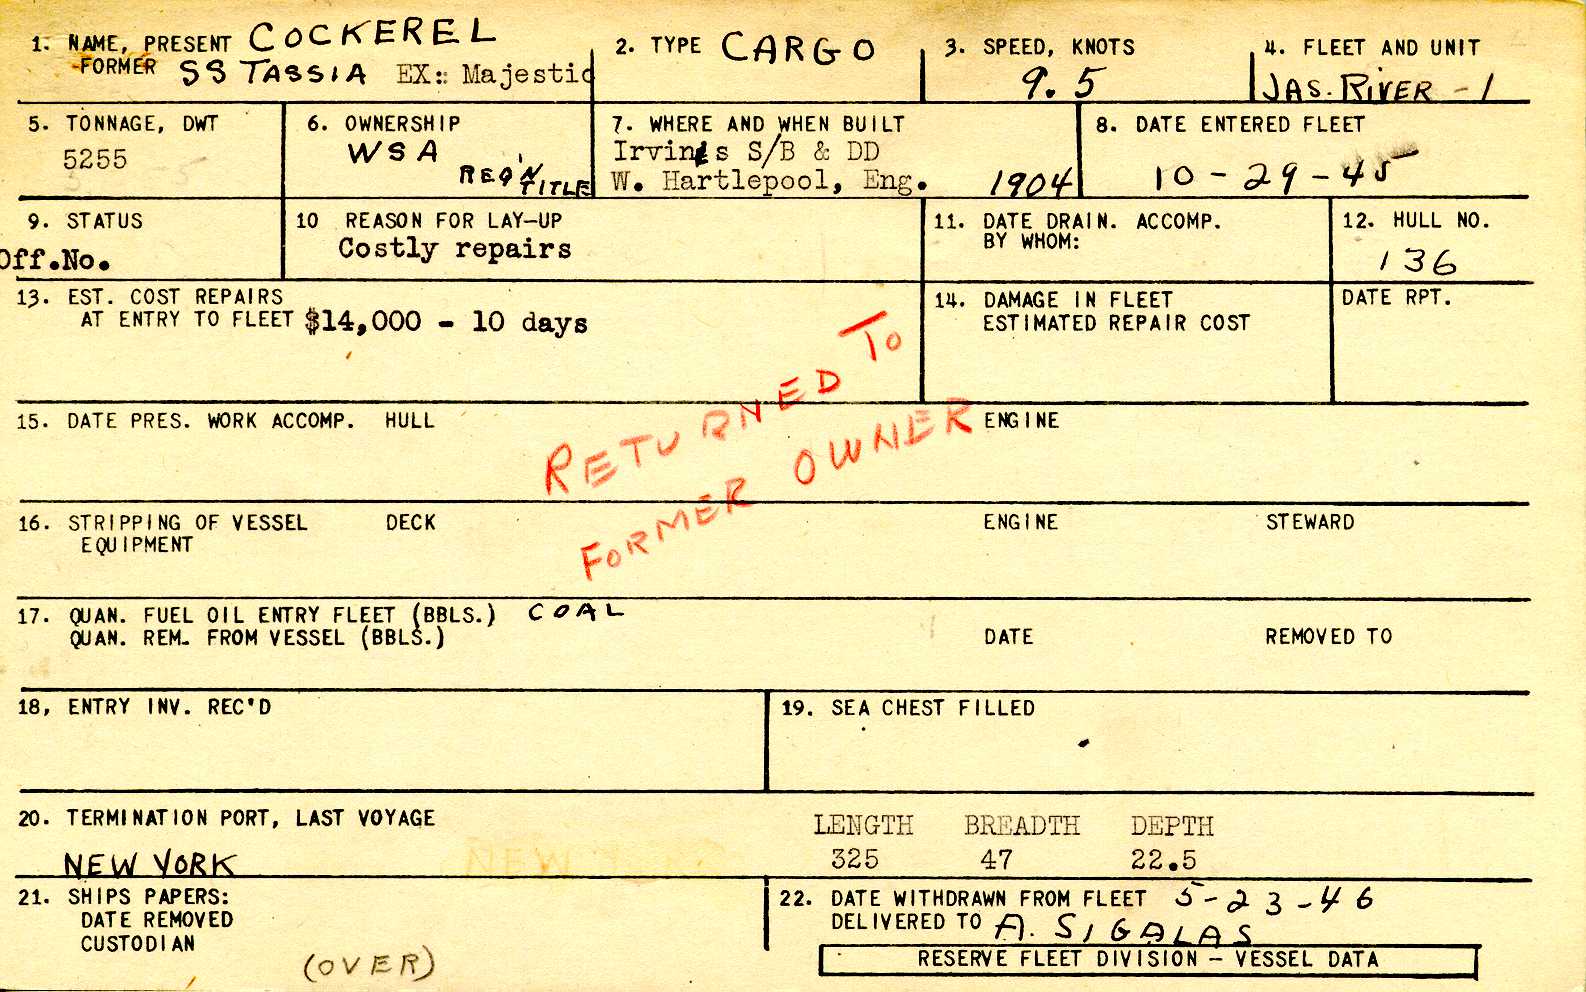 1. NAME, PRESENT COCKEREL
FORMER SS TASSIA EX: Majestic
2. TYPE CARGO
3. SPEED, KNOTS
9.5
4. FLEET AND UNIT
JAS. RIVER - 1
5. TONNAGE, DWT
5255
6. OWNERSHIP
WSA
REQ'N TITLE
7. WHERE AND WHEN BUILT
Irvines S/B & DD
W. Hartlepool, Eng. 1904
8. DATE ENTERED FLEET
10-29-45
9. STATUS
Off.No.
10 REASON FOR LAY-UP
Costly repairs
11. DATE DRAIN. ACCOMP.
BY WHOM:
12. HULL NO.
136
13. EST. COST REPAIRS
AT ENTRY TO FLEET $14,000 - 10 days
14. DAMAGE IN FLEET
ESTIMATED REPAIR COST
DATE RPT.
RETURNED TO
FORMER OWNER
15. DATE PRES. WORK ACCOMP. HULL ENGINE
16. STRIPPING OF VESSEL DECK ENGINE STEWARD
EQUIPMENT
17. QUAN. FUEL OIL ENTRY FLEET (BBLS.) COAL
QUAN. REM. FROM VESSEL (BBLS.) DATE REMOVED TO
18, ENTRY INV. REC'D
19. SEA CHEST FILLED
20. TERMINATION PORT, LAST VOYAGE
NEW YORK
LENGTH BREADTH DEPTH
325 47 22.5
21. SHIPS PAPERS:
DATE REMOVED
CUSTODIAN
(OVER)
22. DATE WITHDRAWN FROM FLEET 5-23-46
DELIVERED TO A. SIGALAS
RESERVE FLEET DIVISION - VESSEL DATA